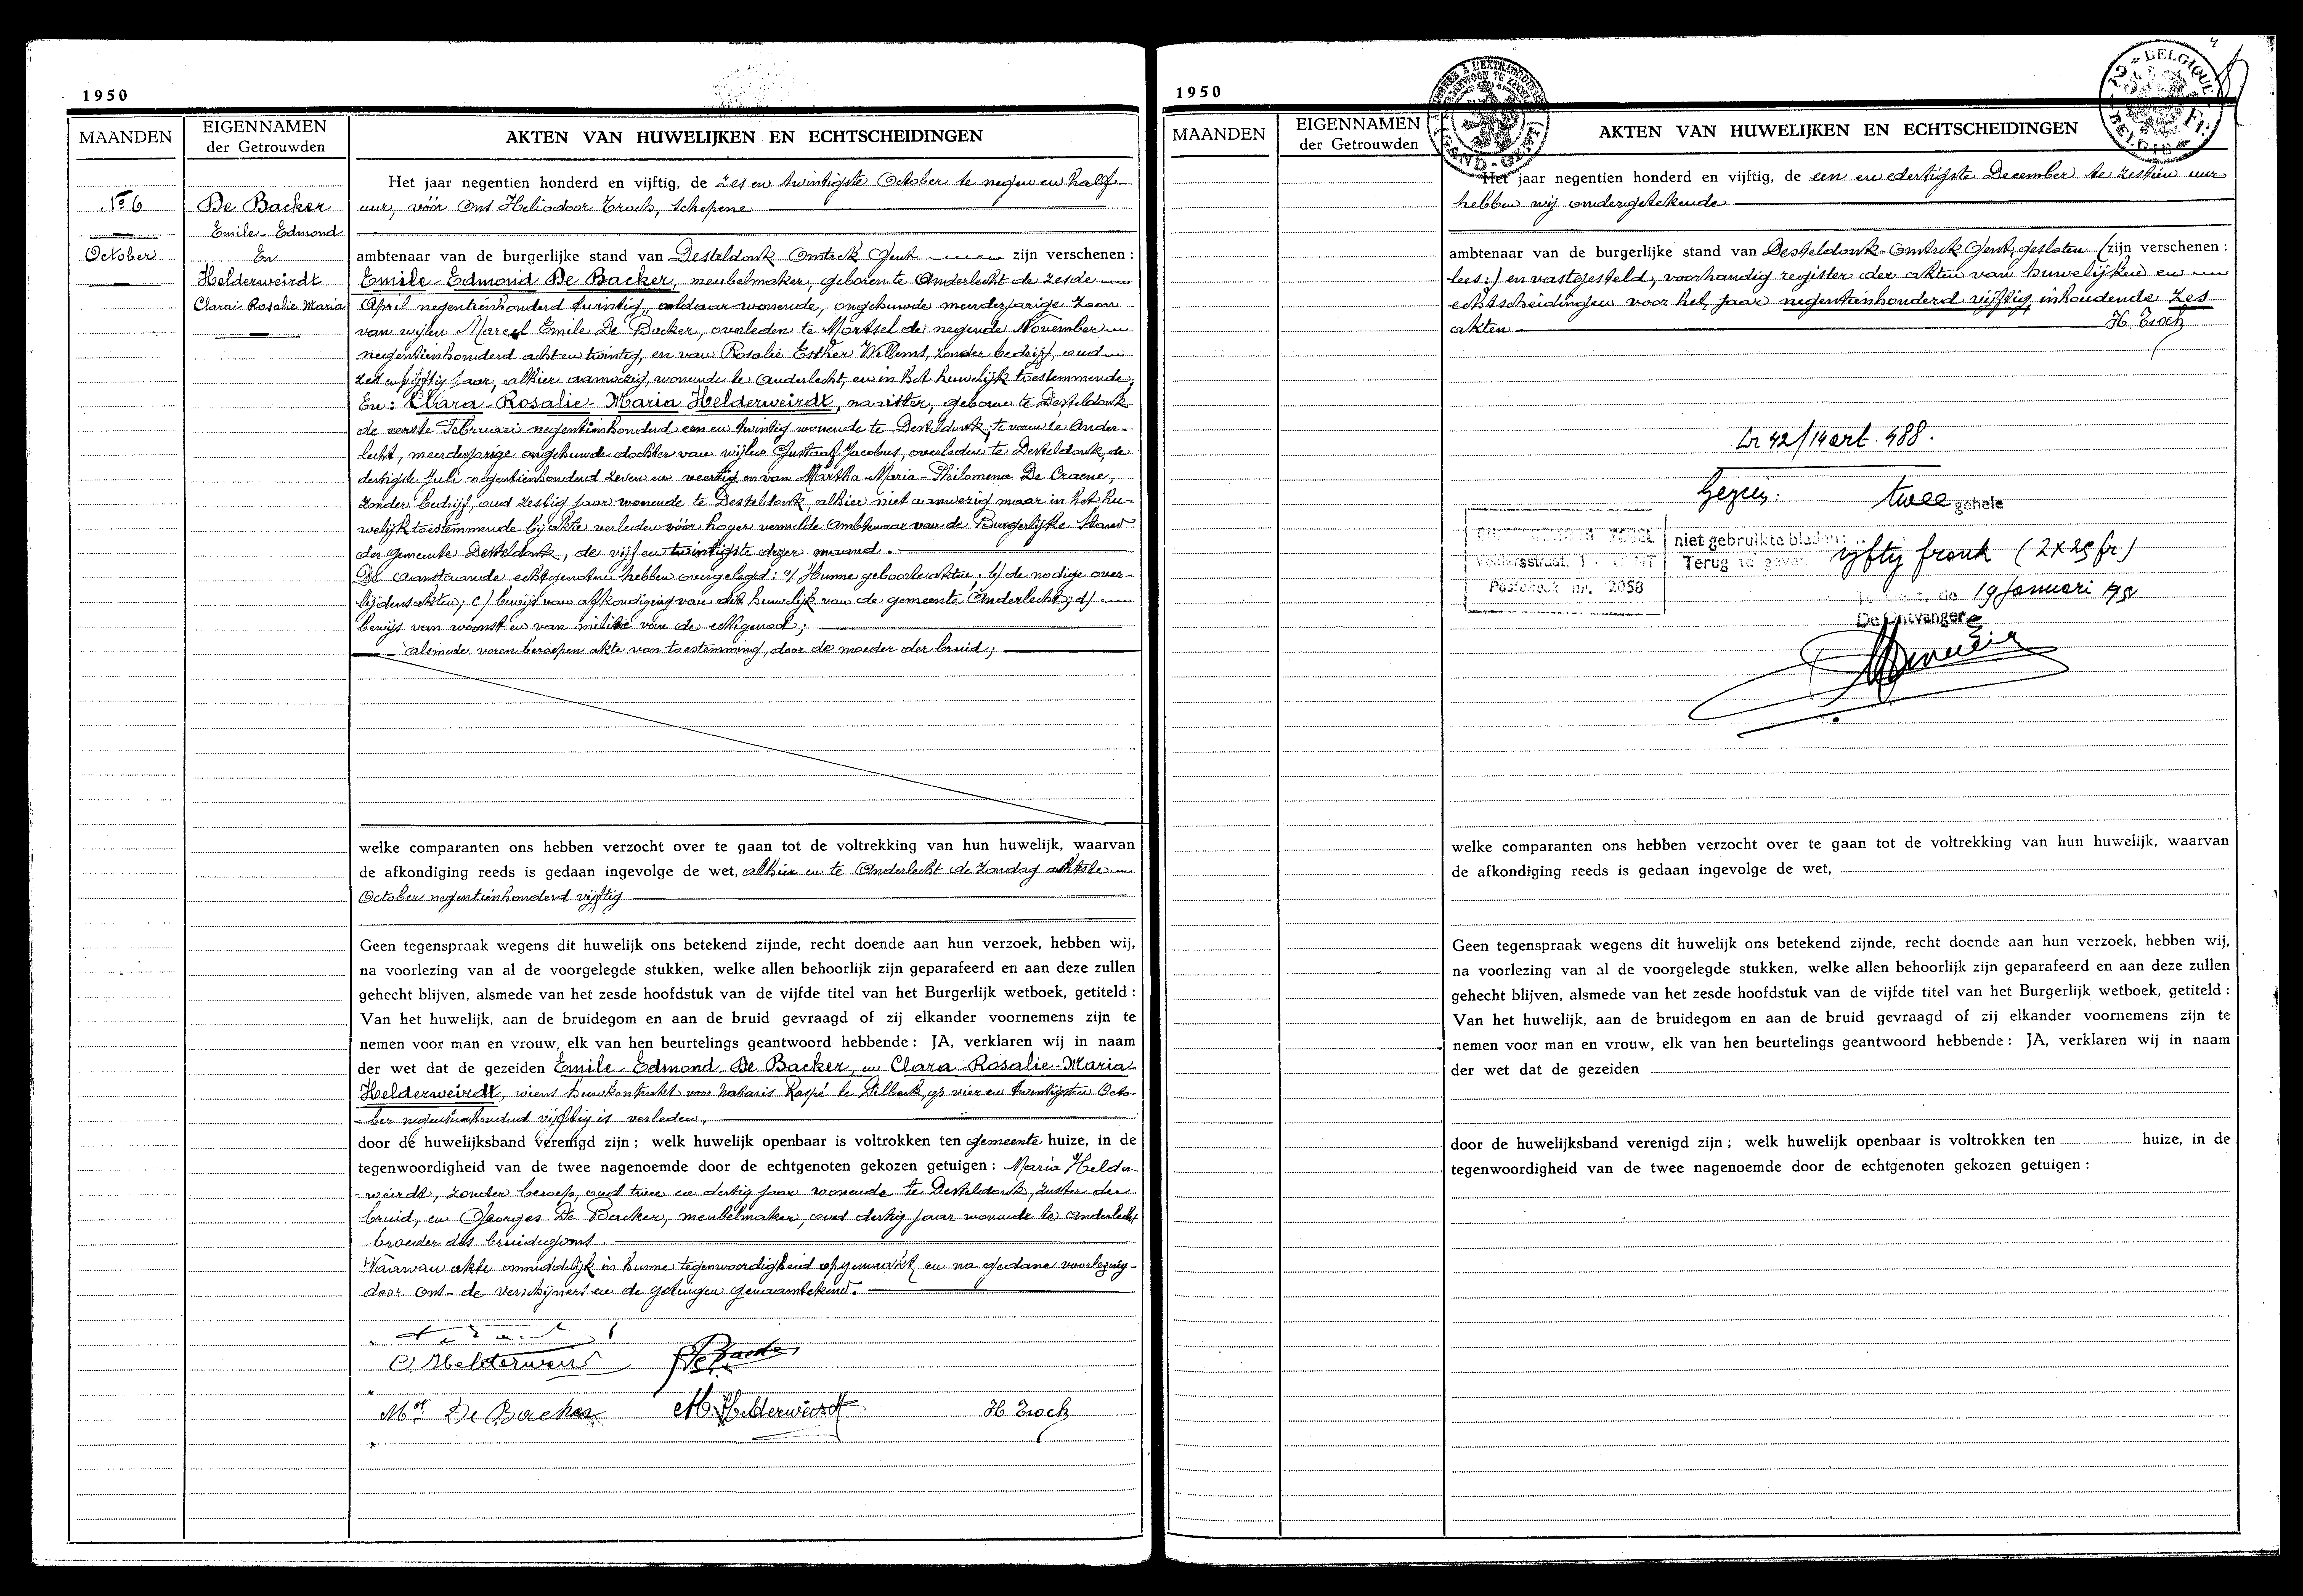 1950
MAANDEN
EIGENNAMEN
der Getrouwden
AKTEN VAN HUWELIJKEN EN ECHTSCHEIDINGEN
Nr 6
October
De Backer
Emile-Edmond
En
Helderweirdt
Clara-Rosalie Maria
Het jaar negentien honderd en vijftig, de zes en twintigste October te negen en half
uur, vóór Ons Heliodoor Troch, Schepene
ambtenaar van de burgerlijke stand van Desteldonk Omtrek Gent zijn verschenen :
Emile-Edmond De Backer, meubelmaker, geboren te Anderlecht de zesde
April negentienhonderd twintig, aldaar wonende, ongehuwde meerderjarige zoon
van wijlen Marcel Emile De Backer, overleden te Mortsel de negende November
negentienhonderd acht en twintig, en van Rosalie Esther Willems, zonder bedrijf, oud
zes en vijftig jaar, alhier aanwezig, wonende te Anderlecht, en in het huwelijk toestemmende,
En: Clara-Rosalie-Maria Helderweirdt, naaister, geboren te Desteldonk
de eerste Februari negentienhonderd een en twintig wonende te Desteldonk, te voren te Ander-
lecht, meerderjarige ongehuwde dochter van wijlen Gustaaf Jacobus, overleden te Desteldonk, de
dertigste Juli negentienhonderd zeven en veertig en van Martha-Maria-Philomena De Craene,
zonder bedrijf, oud zestig jaar wonende te Desteldonk, alhier niet aanwezig maar in het hu-
welijk toestemmende bij akte verleden vóór hoger vermelde Ambtenaar van de Burgerlijke Stand
der gemeente Desteldonk, de vijf en twintigste dezer maand.
De aanstaande echtgenoten hebben overgelegd: a/ Hunne geboorteakten; b/ de nodige over-
lijdensakten; c/ bewijs van afkondiging van dit huwelijk van de gemeente Anderlecht; d/
bewijs van woonst en van militie van de echtgenoot;
alsmede voren beroepen akte van toestemming, door de moeder der bruid;
welke comparanten ons hebben verzocht over te gaan tot de voltrekking van hun huwelijk, waarvan
de afkondiging reeds is gedaan ingevolge de wet, alhier en te Anderlecht de Zondag achtste
October negentienhonderd vijftig
Geen tegenspraak wegens dit huwelijk ons betekend zijnde, recht doende aan hun verzoek, hebben wij,
na voorlezing van al de voorgelegde stukken, welke allen behoorlijk zijn geparafeerd en aan deze zullen
gehecht blijven, alsmede van het zesde hoofdstuk van de vijfde titel van het Burgerlijk wetboek, getiteld :
Van het huwelijk, aan de bruidegom en aan de bruid gevraagd of zij elkander voornemens zijn te
nemen voor man en vrouw, elk van hen beurtelings geantwoord hebbende : JA, verklaren wij in naam
der wet dat de gezeiden Emile-Edmond De Backer, en Clara Rosalie-Maria-
Helderweirdt, wiens huwkontrakt voor Notaris Raspé te Dilbeek, op vier en twintigsten Octo-
ber negentienhonderd vijftig is verleden,
door de huwelijksband verenigd zijn ; welk huwelijk openbaar is voltrokken ten gemeente huize, in de
tegenwoordigheid van de twee nagenoemde door de echtgenoten gekozen getuigen : Maria Helder-
weirdt, zonder beroep, oud twee en dertig jaar wonende te Desteldonk, zuster der
bruid, en Georges De Backer, meubelmaker, oud dertig jaar wonende te Anderlecht
broeder des bruidegoms.
Waarvan akte onmiddelijk in hunne tegenwoordigheid opgemaakt en na gedane voorlezing
door Ons de verschijners en de getuigen genaamtekend.
C. Helderweirdt
De Backer
De Backer
M. Helderweirdt
H Troch
1950
MAANDEN
EIGENNAMEN
der Getrouwden
AKTEN VAN HUWELIJKEN EN ECHTSCHEIDINGEN
GAND-GENT
BELGIQUE
2 Fr.
BELGIE
Het jaar negentien honderd en vijftig, de een en dertigste December te zestien uur
hebben wij ondergetekende
ambtenaar van de burgerlijke stand van Desteldonk-Omtrek Gent, gesloten (zijn verschenen :
lees:) en vastgesteld, voorhandig register der akten van huwelijken en
echtscheidingen voor het jaar negentienhonderd vijftig inhoudende zes
akten
H Troch
Ln 42/14 art. 488.
Gezien: twee gehele
niet gebruikte bladen :
Terug te geven vyftig frank (2 x 25 fr)
Postcheck nr. 2058
de 19 Januari 1951
De Ontvanger
welke comparanten ons hebben verzocht over te gaan tot de voltrekking van hun huwelijk, waarvan
de afkondiging reeds is gedaan ingevolge de wet,
Geen tegenspraak wegens dit huwelijk ons betekend zijnde, recht doende aan hun verzoek, hebben wij,
na voorlezing van al de voorgelegde stukken, welke allen behoorlijk zijn geparafeerd en aan deze zullen
gehecht blijven, alsmede van het zesde hoofdstuk van de vijfde titel van het Burgerlijk wetboek, getiteld :
Van het huwelijk, aan de bruidegom en aan de bruid gevraagd of zij elkander voornemens zijn te
nemen voor man en vrouw, elk van hen beurtelings geantwoord hebbende : JA, verklaren wij in naam
der wet dat de gezeiden
door de huwelijksband verenigd zijn ; welk huwelijk openbaar is voltrokken ten huize, in de
tegenwoordigheid van de twee nagenoemde door de echtgenoten gekozen getuigen :